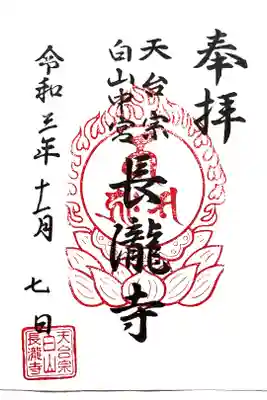 奉拝
天台宗
白山中宮
長瀧寺
令和三年十一月七日
天台宗
白山
長瀧寺